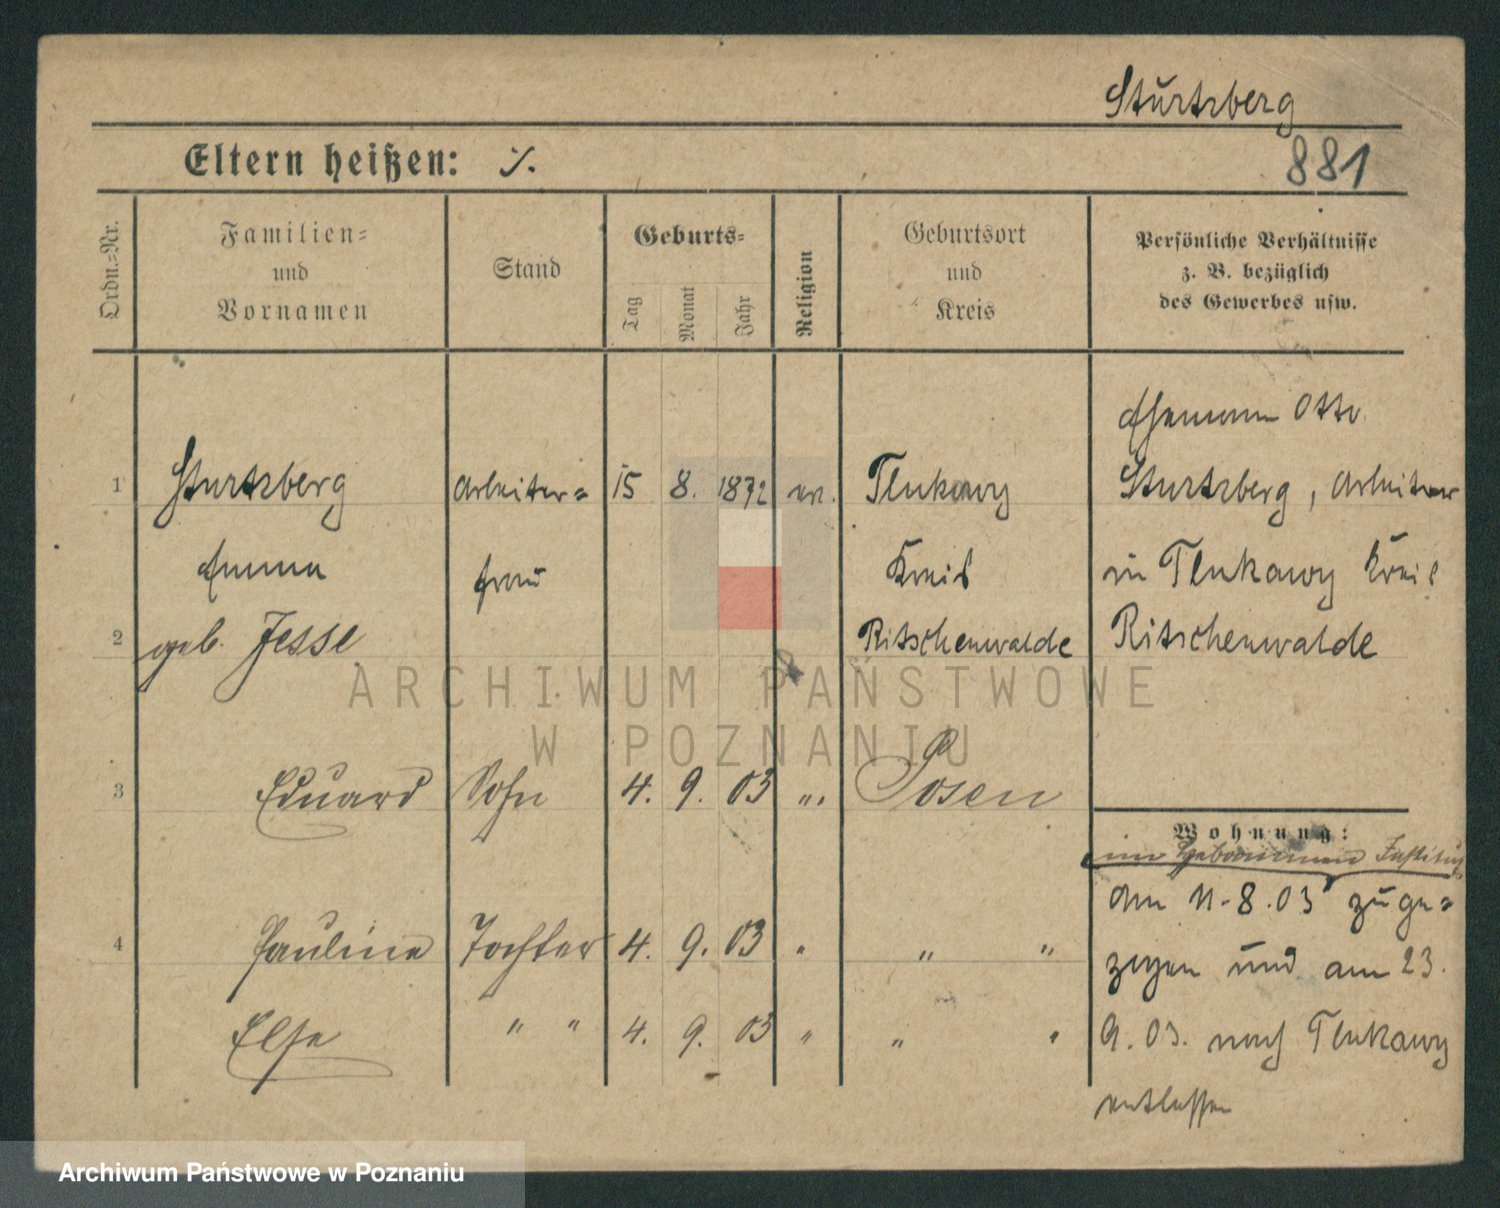 Sturtzberg
Eltern heißen: ·/.
881
Ordn.=Nr.
Familien=
und
Vornamen
Stand
Geburts=
Tag
Monat
Jahr
Religion
Geburtsort
und
Kreis
Persönliche Verhältnisse
z. B. bezüglich
des Gewerbes usw.
Ehemann Otto
1 Sturtzberg Arbeiter= 15 8. 1872 ev. Tlukawy Sturtzberg, Arbeiter
Emma frau Kreis in Tlukawy Kreis
2 geb. Jesse Ritschenwalde Ritschenwalde
ARCHIWUM PAŃSTWOWE
W POZNANIU
3 Eduard Sohn 4. 9. 03 ". Posen
Wohnung:
im Hebammen Institut
am 11.8.03 zuge=
4 Pauline Tochter 4. 9. 03 " " "
zogen und am 23.
Else " " 4. 9. 03 " " "
9.03. nach Tlukawy
entlassen
Archiwum Państwowe w Poznaniu